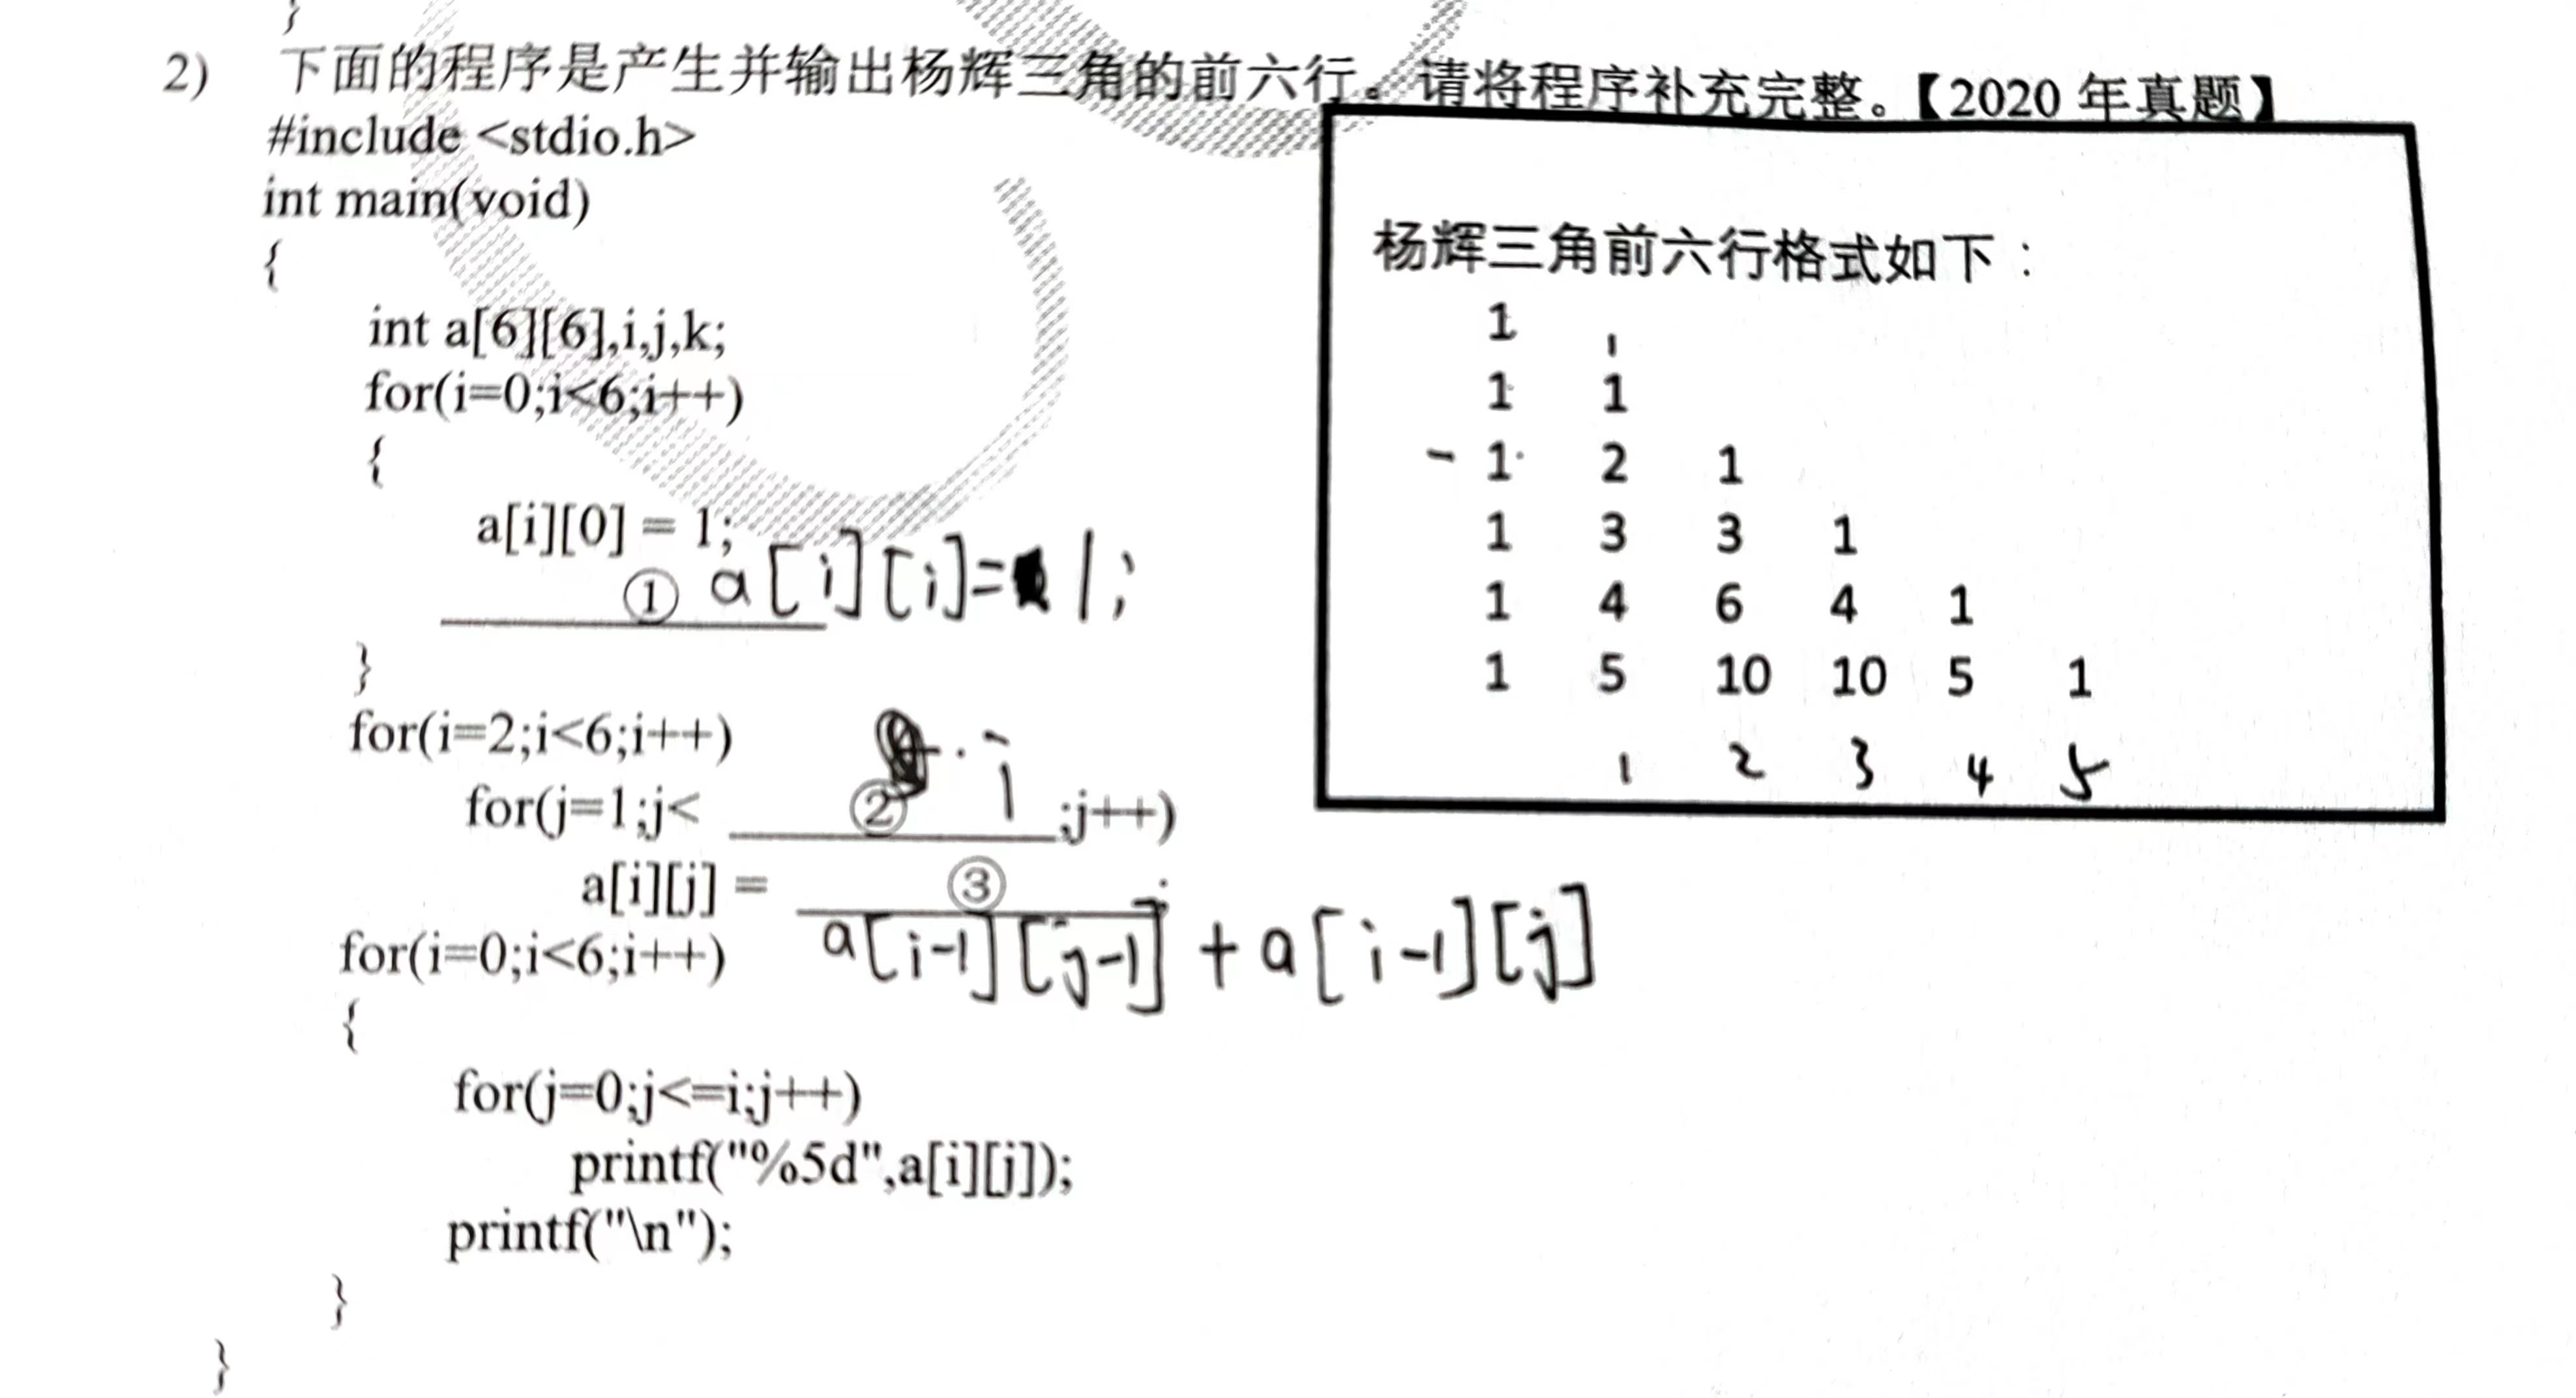 }
2) 下面的程序是产生并输出杨辉三角的前六行。请将程序补充完整。【2020 年真题】
#include <stdio.h>
int main(void)
{
int a[6][6],i,j,k;
for(i=0;i<6;i++)
{
a[i][0] = 1;
① a[i][i]=1;
}
for(i=2;i<6;i++)
for(j=1;j< ② i ;j++)
a[i][j] = ③ ;
a[i-1][j-1]+a[i-1][j]
for(i=0;i<6;i++)
{
for(j=0;j<=i;j++)
printf("%5d",a[i][j]);
printf("\n");
}
}
杨辉三角前六行格式如下：
1
1 1
1 2 1
1 3 3 1
1 4 6 4 1
1 5 10 10 5 1
1 2 3 4 5